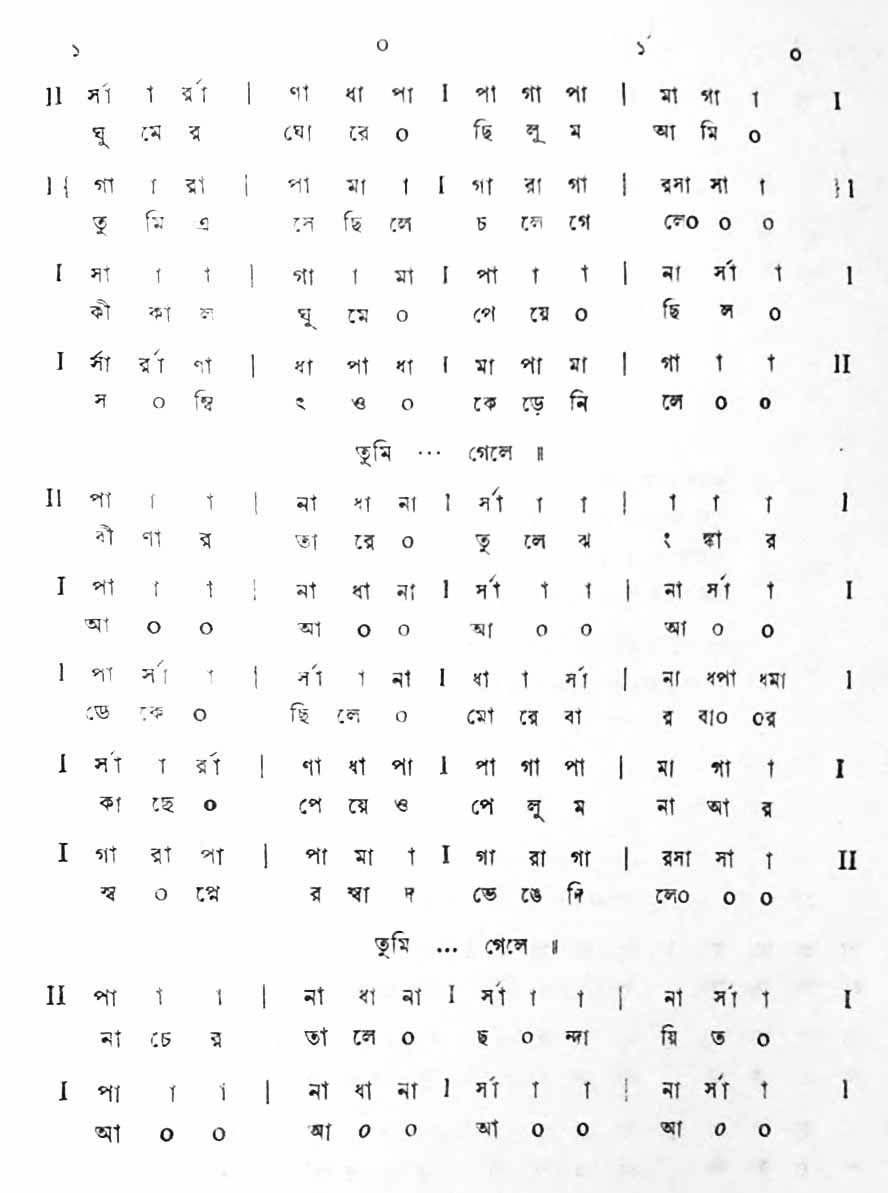 ১ ০ ১´ ০
II র্সা া র্রা | ণা ধা পা I পা গা পা | মা গা া I
ঘু মে র ঘো রে ০ ছি লু ম আ মি ০
I { গা া রা | পা মা া I গা রা গা | রসা সা া } I
তু মি এ সে ছি লে চ লে গে লে০ ০ ০
I সা া া | গা া মা I পা া া | না র্সা া I
কী কা ল ঘু মে ০ পে য়ে ০ ছি ল ০
I র্সা র্রা ণা | ধা পা ধা I মা পা মা | গা া া II
স ০ ম্বি ৎ ও ০ কে ড়ে নি লে ০ ০
তুমি ... গেলে ॥
II পা া া | না ধা না I র্সা া া | া া া I
বী ণা র তা রে ০ তু লে ঝ ং ঙ্কা র
I পা া া | না ধা না I র্সা া া | না র্সা া I
আ ০ ০ আ ০ ০ আ ০ ০ আ ০ ০
I পা র্সা া | র্সা া না I ধা া র্সা | না ধপা ধমা I
ডে কে ০ ছি লে ০ মো রে বা র বা০ ০র
I র্সা া র্রা | ণা ধা পা I পা গা পা | মা গা া I
কা ছে ০ পে য়ে ও পে লু ম না আ র
I গা রা পা | পা মা া I গা রা গা | রসা সা া II
স্ব ০ প্নে র স্বা দ ভে ঙে দি লে০ ০ ০
তুমি ... গেলে ॥
II পা া া | না ধা না I র্সা া া | না র্সা া I
না চে র তা লে ০ ছ ০ ন্দা য়ি ত ০
I পা া া | না ধা না I র্সা া া | না র্সা া I
আ ০ ০ আ ০ ০ আ ০ ০ আ ০ ০